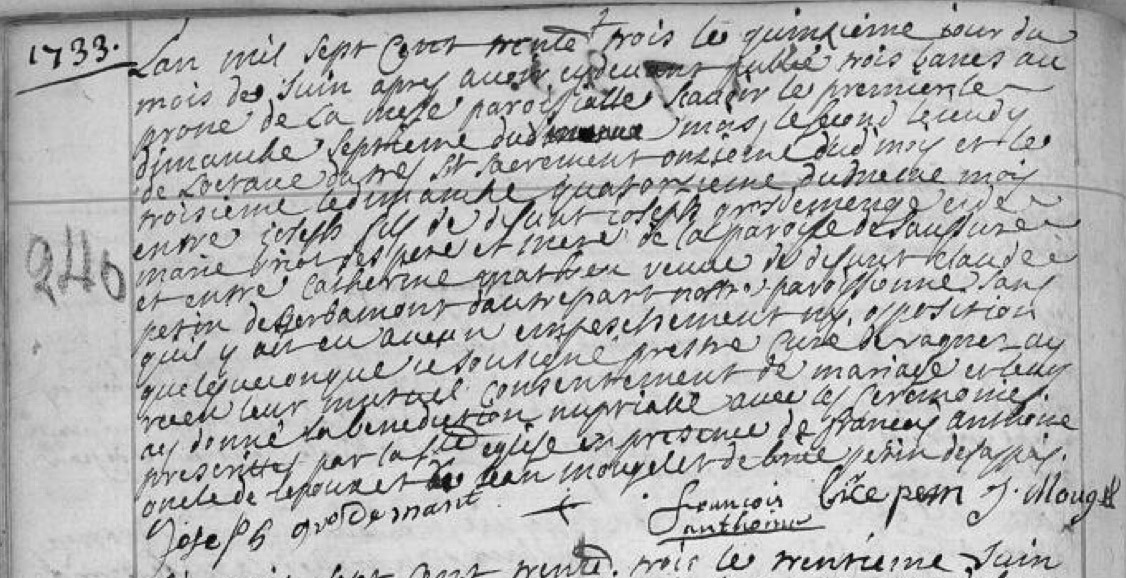 1733.
Lan mil sept cent trente trois le quinzieme jour du
mois de Juin apres avoir cydevant publié trois bancs au
prone de la messe paroissialle scavoir le premier le
dimanche septieme dud mois, le second le jeudy
de Loctave du tres St Sacrement onzieme dud mois et le
troisieme le dimanche quatorzieme du meme mois
entre joseph fils de defunt joseph grosdemenge et de
marie viriot ses pere et mere de la paroisse de Saulxure
et entre Catherine mathieu veuve de defunt claude
petin de gerbamont dautre part nostre paroissienne sans
quil y ait eu aucun empeschement ny opposition
quelqueconque je soubsigné prestre Curé de vagney ay
receu leur mutuel consentement de mariage et leurs
ay donné la benediction nuptiale avec les ceremonies
prescrittes par la ste eglise en presence de francois anthoine
oncle de lepoux et de Jean mougel et de brice petin
240
Joseph grosdemant
+
francois
anthoine
brice petin J. Moug
sept cent trente trois le trentieme Juin